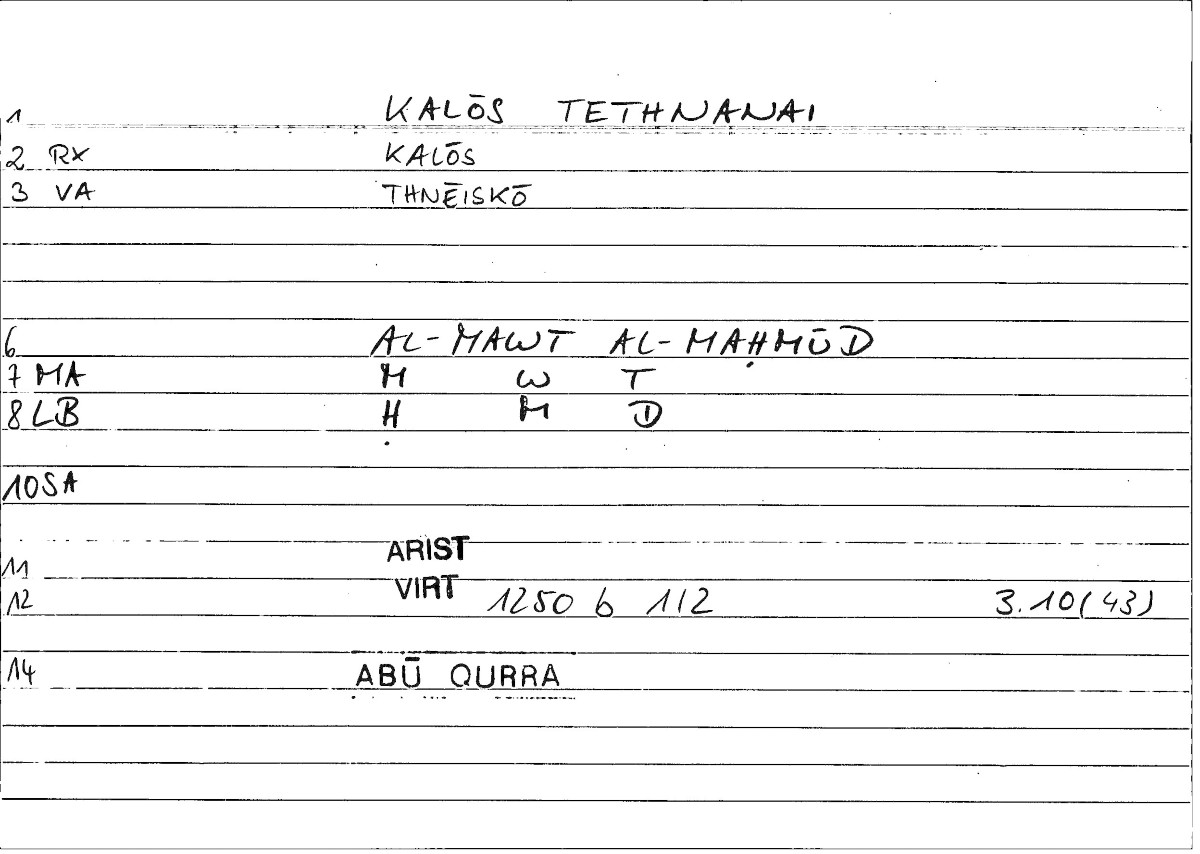 1 KALŌS TETHNANAI
2 RX KALŌS
3 VA THNĒISKŌ
6 AL-MAWT AL-MAḤMŪD
7 MA M W T
8 LB Ḥ M D
10 SA
11 ARIST
12 VIRT 1250 b 1/2 3.10(43)
14 ABŪ QURRA